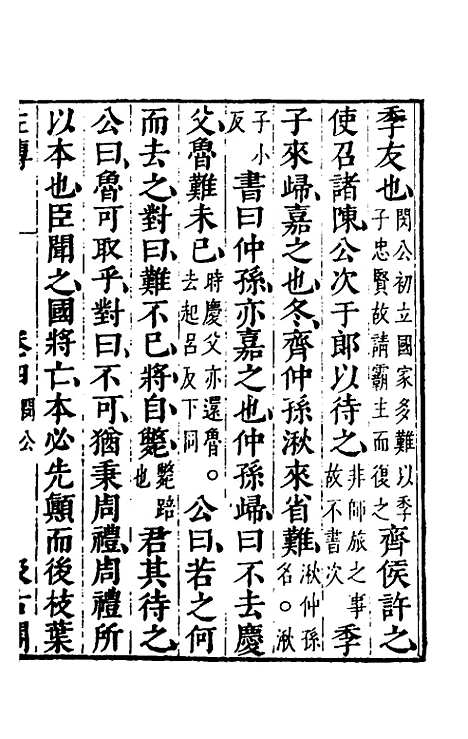 季友也閔公初立國家多難以季子忠賢故請霸主而復之齊侯許之
使召諸陳公次于郎以待之非師旅之事故不書次季
子來歸嘉之也冬齊仲孫湫來省難湫仲孫名○湫
子小反書曰仲孫亦嘉之也仲孫歸曰不去慶
父魯難未已時慶父亦還魯○去起呂反下同公曰若之何
而去之對曰難不已將自斃斃踣也君其待之
公曰魯可取乎對曰不可猶秉周禮周禮所
以本也臣聞之國將亡本必先顛而後枝葉
左傳 卷四 閔公 汲古閣